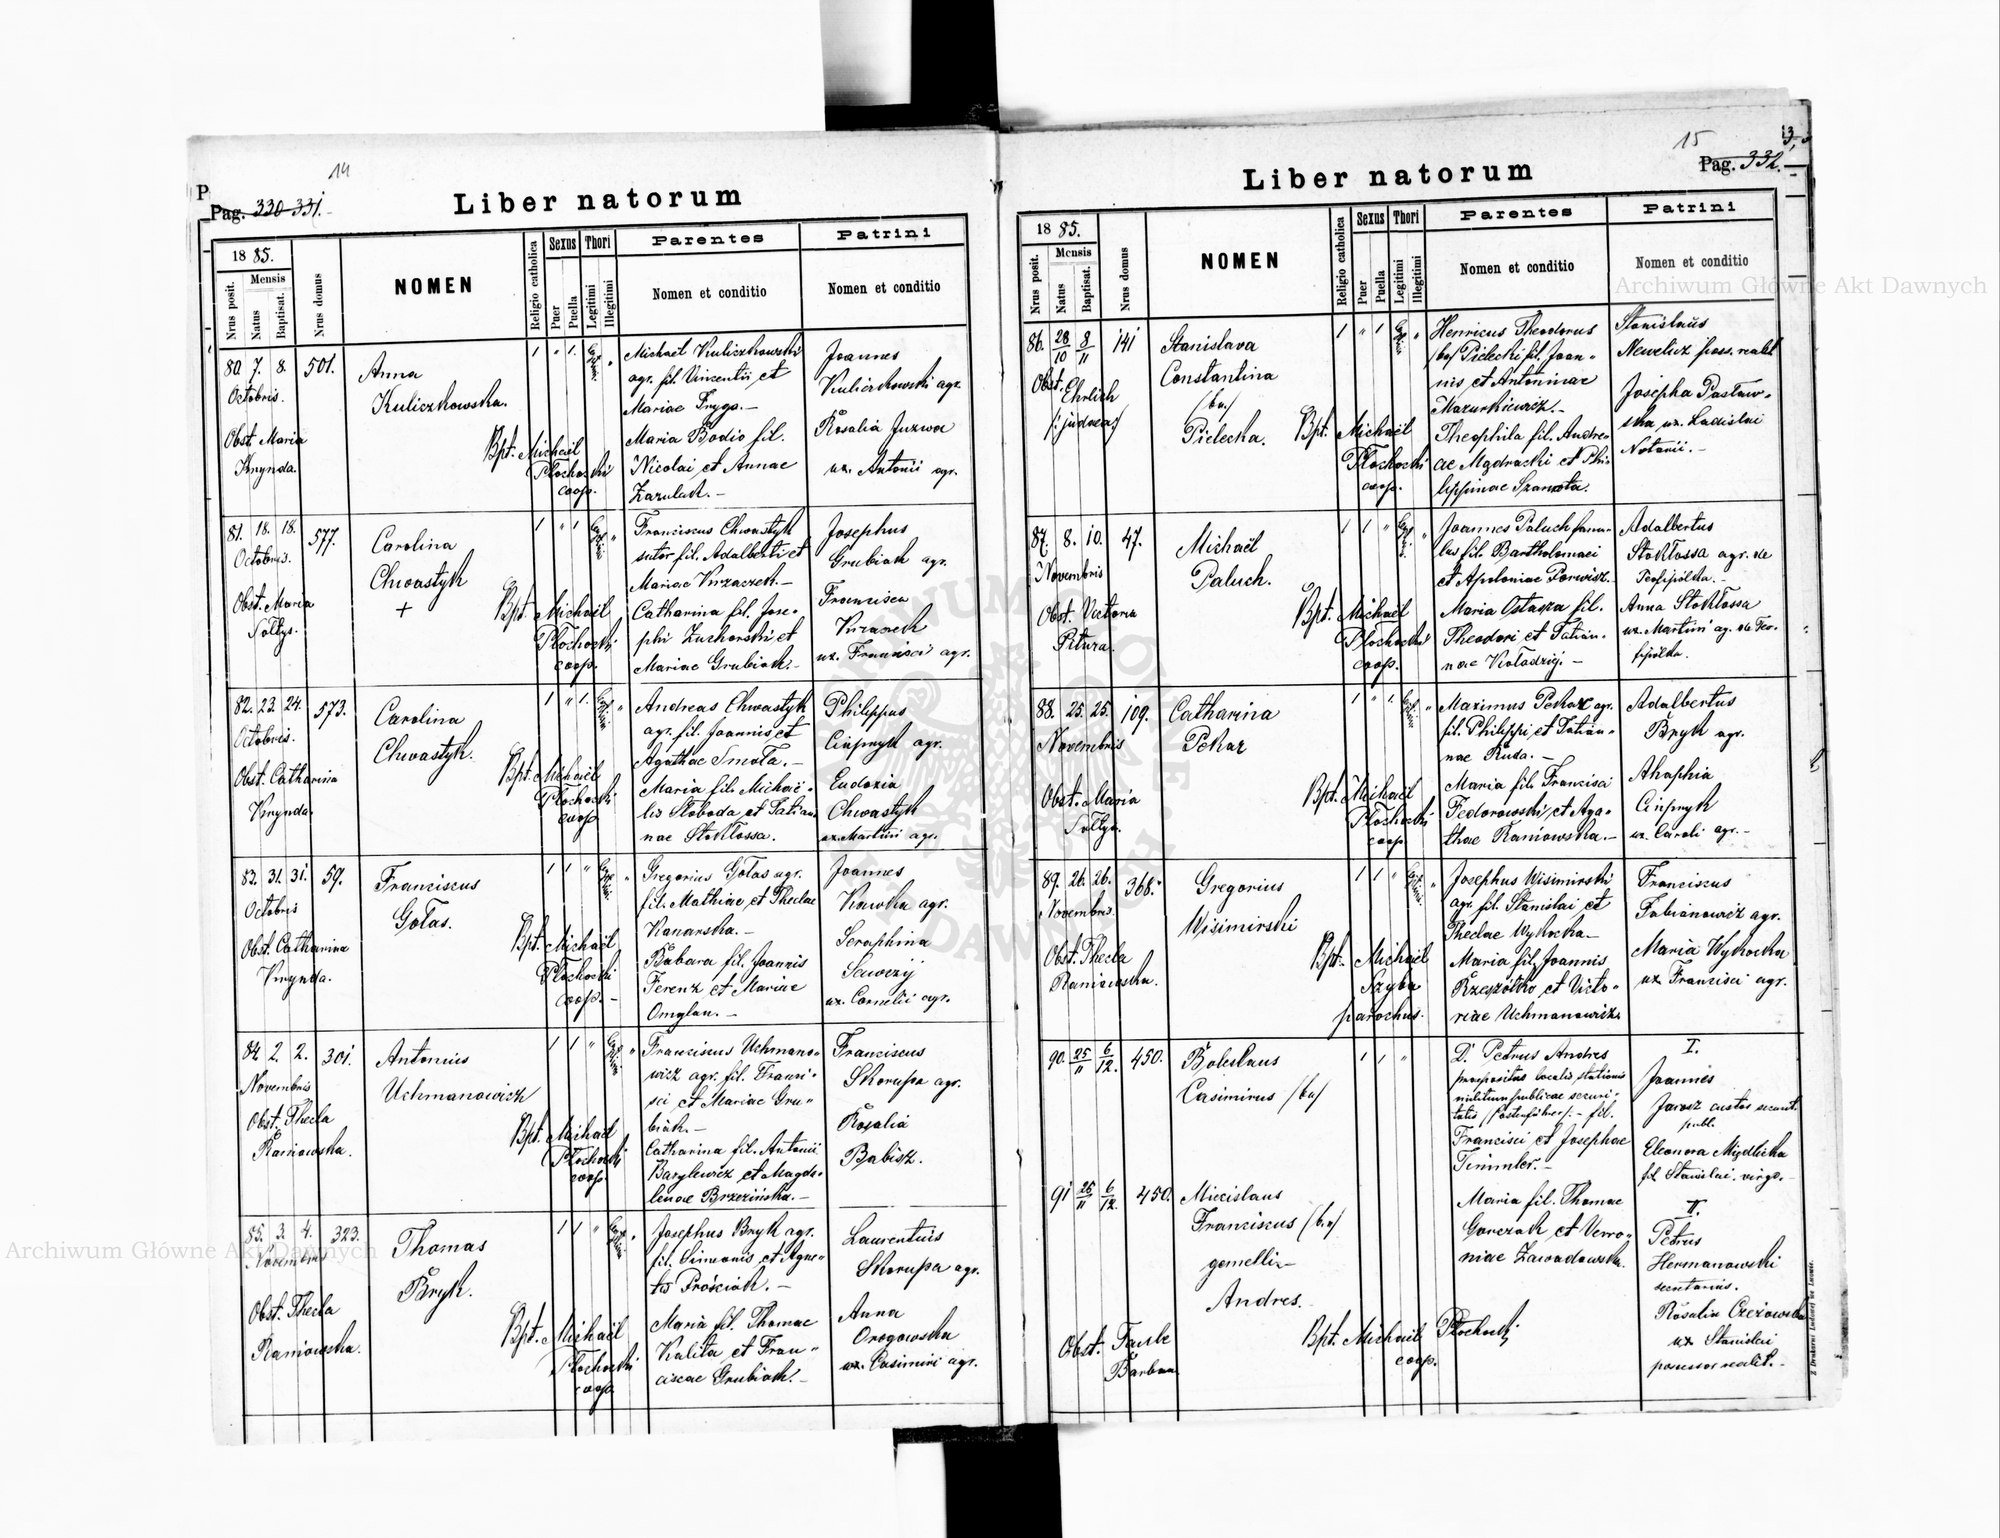 14
Pag. 330-331.
Liber natorum
1885.
Nrus posit.
Mensis
Natus
Baptisat.
Nrus domus
NOMEN
Religio catholica
Sexus
Puer
Puella
Thori
Legitimi
Illegitimi
Parentes
Nomen et conditio
Patrini
Nomen et conditio
80. 7. 8. 501.
Octobris.
Obst. Maria
Krynda.
Anna
Kuliczkowska.
Bpt. Michaël
Płochocki
coop.
Michaël Kuliczkowski
agr. fil. Vincentii et
Mariae Fryga.—
Maria Bodio fil.
Nicolai et Annae
Zazulak.—
Joannes
Kuliczkowski agr.
Rosalia Juzwa
ux. Antonii agr.
81. 18. 18. 577.
Octobris.
Obst. Maria
Sołtys.
Carolina
Chwastyk
+
Bpt. Michaël
Płochocki
coop.
Franciscus Chwastyk
sutor fil. Adalberti et
Mariae Krzaczek.—
Catharina fil. Jose-
phi Zuchorski et
Mariae Grubiak.—
Josephus
Grubiak agr.
Francisca
Krzaczek
ux. Francisci agr.
82. 23. 24. 573.
Octobris.
Obst. Catharina
Krynda.
Carolina
Chwastyk.
Bpt. Michaël
Płochocki
coop.
Andreas Chwastyk
agr. fil. Joannis et
Agathae Smoła.—
Maria fil. Michaë-
lis Słoboda et Tatian-
nae Stokłossa.
Philippus
agr.
Eudoxia
Chwastyk
ux. Martini agr.
83. 31. 31. 59.
Octobris
Obst. Catharina
Krynda.
Franciscus
Gołas.
Bpt. Michaël
Płochocki
coop.—
Gregorius Gołas agr.
fil. Mathiae et Theclae
Kanarska.—
Babara fil. Joannis
Ferenz et Mariae
Omylan.—
Joannes
Kawka agr.
Seraphina
Sawczij
ux. Cornelii agr.
84. 2. 2. 301.
Novembris
Obst. Thecla
Raniowska.
Antonius
Uchmanowicz
Bpt. Michaël
Płochocki
coop.
Franciscus Uchmano-
wicz agr. fil. Franci-
sci et Mariae Gru-
biak.—
Catharina fil. Antonii
Barylewicz et Magda-
lenae Brzezińska.—
Franciscus
Skorupa agr.
Rosalia
Babisz.
85. 3. 4. 323.
Novembris
Obst. Thecla
Raniowska.
Thomas
Bryk.
Bpt. Michaël
Płochocki
coop.
Josephus Bryk agr.
fil. Simonis et Agne-
tis Prościak.—
Maria fil. Thomae
Kalita et Fran-
ciscae Grubiak.—
Laurentius
Skorupa agr.
Anna
Orogowska
ux. Casimiri agr.
15
Pag. 332.
Liber natorum
1885.
Nrus posit.
Mensis
Natus
Baptisat.
Nrus domus
NOMEN
Religio catholica
Sexus
Puer
Puella
Thori
Legitimi
Illegitimi
Parentes
Nomen et conditio
Patrini
Nomen et conditio
86. 28/10 8/11 141
Obst. Ehrlich
/: judaea :/
Stanislava
Constantina
/ba/
Pielecka.
Bpt. Michaël
Płochocki
coop.
Henricus Theodorus
/ba/ Pielecki fil. Joan-
nis et Antoninae
Mazurkiewicz.—
Theophila fil. Andre-
ae Mądracki et Phi-
lippinae Szamota.
Stanislaus
Newelicz poss. realit
Josepha Pastaw-
ska ux. Ladislai
Notarii.—
87. 8. 10. 47.
Novembris
Obst. Victoria
Pitura.
Michaël
Paluch.
Bpt. Michaël
Płochocki
coop.
Joannes Paluch famu-
lus fil. Bartholomaei
et Apoloniae Porwisz.
Maria Ostasza fil.
Theodori et Tatian-
nae Kołodzij.—
Adalbertus
Stokłossa agr. de
Teofipólka.—
Anna Stokłossa
ux. Martini ag. de Teo-
fipólka.
88. 25. 25. 109.
Novembris
Obst. Maria
Sołtys.
Catharina
Pekar
Bpt. Michaël
Płochocki
coop.
Maximus Pekar agr.
fil. Philippi et Tatian-
nae Ruda.—
Maria fil. Francisci
Fedorowski et Aga-
thae Raniowska.—
Adalbertus
Bryk agr.
Ahaphia
ux. Caroli agr.—
89. 26. 26. 368.
Novembris.
Obst. Thecla
Raniowska.
Gregorius
Wisimirski
Bpt. Michaël
Szyba
parochus.
Josephus Wisimirski
agr. fil. Stanislai et
Theclae Wykocka—
Maria fil. Joannis
Rzeszótko et Victo-
riae Uchmanowicz.
Franciscus
Fabianowicz agr.
Maria Wykocka
ux. Francisci agr.
90. 25/11 6/12. 450.
Boleslaus
Casimirus /ba/
91 25/11 6/12. 450.
Miecislaus
Franciscus /ba/
gemelli—
Andres.
Obst. Taube
Barban
Bpt. Michaël Płochocki
coop.
D. Petrus Andres
praepositus localis stationis
militum publicae securi-
tatis /Postenführer/.— fil.
Francisci et Josephae
Timmler.—
Maria fil. Thomae
Gorczak et Vero-
nicae Zawadowska.
I.
Joannes
Jarosz custos securit.
publ.
Eleonora Mydlicka
fil. Stanislai. virgo.—
II.
Petrus
Hermanowski
secretarius.
Rosalia Czeżowska
ux. Stanislai
possessor realit.—
Z Drukarni Ludowej we Lwowie.
Archiwum Główne Akt Dawnych
Archiwum Główne Akt Dawnych